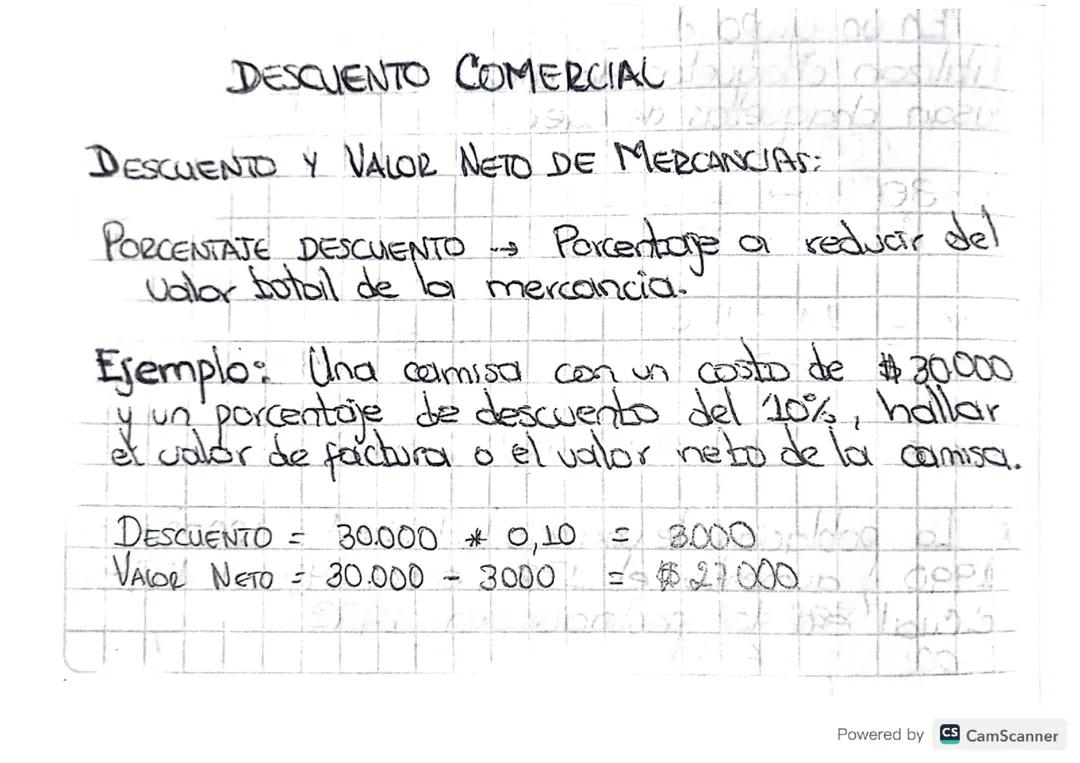 DESCUENTO COMERCIAL
DESCUENTO Y VALOR NETO DE MERCANCIAS:
PORCENTAJE DESCUENTO → Porcentaje a reducir del
valor total de la mercancia.
Ejemplo: Una camisa con un costo de $30.000
y un porcentaje de descuento del 10%, hallar
el valor de factura o el valor neto de la camisa.
DESCUENTO = 30.000 * 0,10 = 3.000
VALOR NETO = 30.000 - 3000 = $27.000
Powered by CS CamScanner